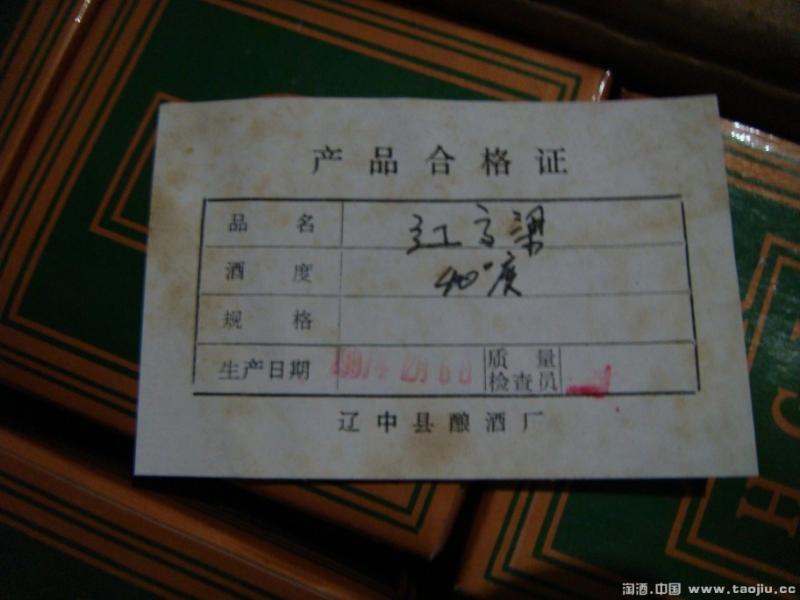 产品合格证
品名 红高梁
酒度 40°度
规格
生产日期 质量检查员
辽中县酿酒厂
HC
淘酒.中国 www.taojiu.cc